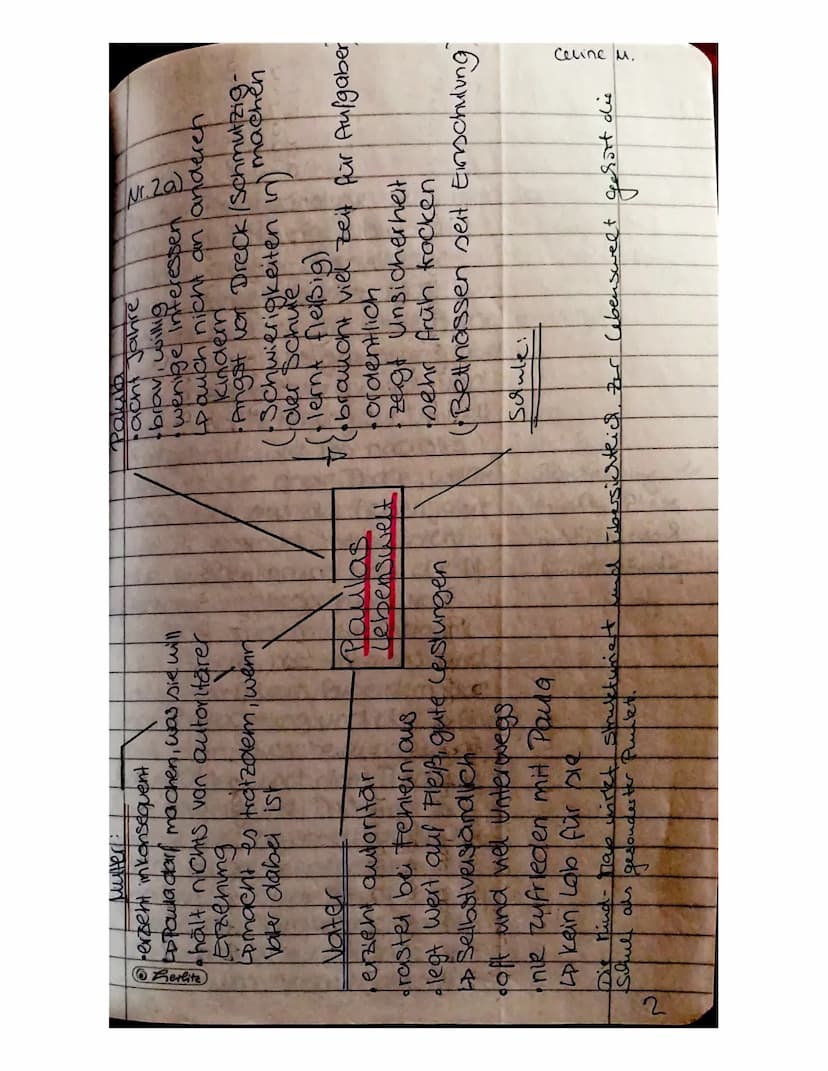 Mutter:
• erzieht inkonsequent
↳ Paula darf machen, was sie will
• hält nichts von autoritärer
Erziehung
↳ macht es trotzdem, wenn
Vater dabei ist
Herlitz
Paula
Nr. 2a)
• acht Jahre
• brav, willig
• wenige Interessen
↳ auch nicht an anderen
Kindern
• Angst vor Dreck (Schmutzig-
machen
(• Schwierigkeiten in)
der Schule
(• lernt fleißig)
• braucht viel Zeit für Aufgaben
• ordentlich
• zeigt Unsicherheit
• sehr früh trocken
(• Bettnässen seit Einschulung)
Paulas
Lebenswelt
Vater
• erzieht autoritär
• rastet bei Fehlern aus
• legt Wert auf Fleiß, gute Leistungen
↳ Selbstverständlich
• oft und viel Unterwegs
• nie zufrieden mit Paula
↳ kein Lob für sie
Schule:
Celine M.
Die Mind-Map wirkt strukturiert und übersichtlich. Zur Lebenswelt gehört die
Schule als gesonderter Punkt.
2